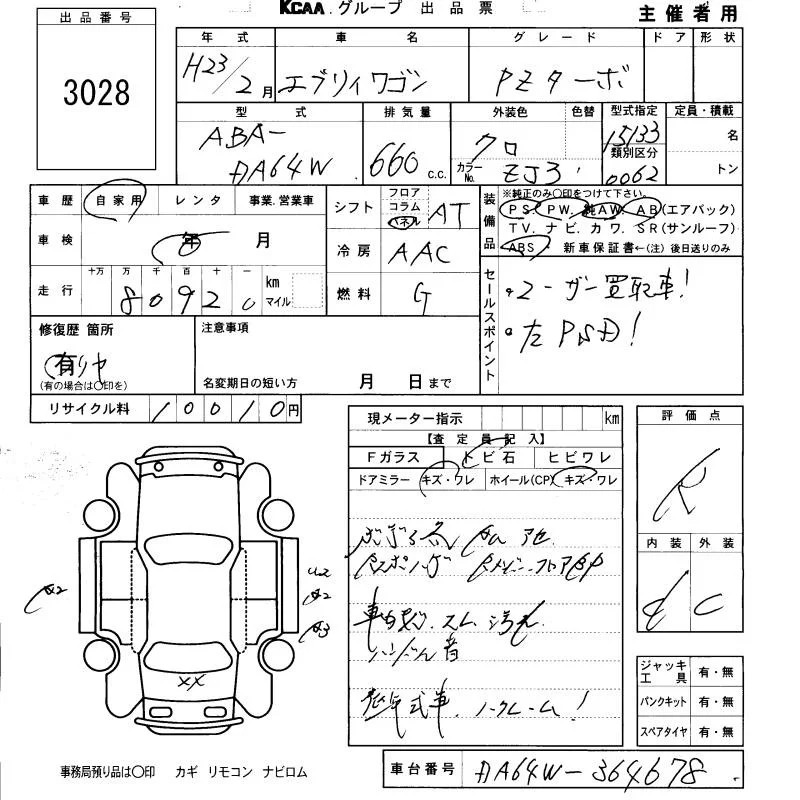 KCAA.グループ 出品票
主催者用
出品番号
3028
年式 車名 グレード ドア 形状
H23/2月 エブリィワゴン PZターボ
型式 排気量 外装色 色替 型式指定 定員・積載
ABA-
DA64W 660 c.c. クロ カラーNo. ZJ3 15133 名
類別区分
0062 トン
車歴 自家用 レンタ 事業.営業車
シフト フロア コラム パネル AT
装備品 ※純正のみ○印をつけて下さい。
PS. PW. 純AW. AB(エアバック)
TV. ナビ. カワ. SR(サンルーフ)
ABS 新車保証書←(注) 後日送りのみ
車検 年 月
冷房 AAC
走行 十万 万 千 百 十 一 km マイル
8 0 9 2 0
燃料 G
セールスポイント
・ユーザー買取車!
・左PSD!
修復歴 箇所
有りヤ
(有の場合は○印を)
注意事項
名変期日の短い方 月 日まで
リサイクル料 1 0 0 1 0 円
現メーター指示 km
【査定員記入】
Fガラス トビ石 ヒビワレ
ドアミラー キズ・ワレ ホイール(CP) キズ・ワレ
評価点
R
内装 外装
d C
A2
U2
A2
A3
XX
車内 スレ 汚れ
低年式車、ノークレーム!
ジャッキ工具 有・無
パンクキット 有・無
スペアタイヤ 有・無
事務局預り品は○印 カギ リモコン ナビロム
車台番号 DA64W-364678